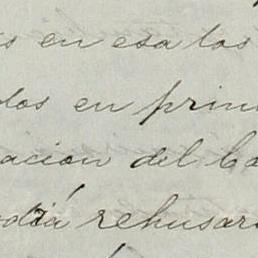 s en esa los
dos en prin
acion del Co
odiá rehusar